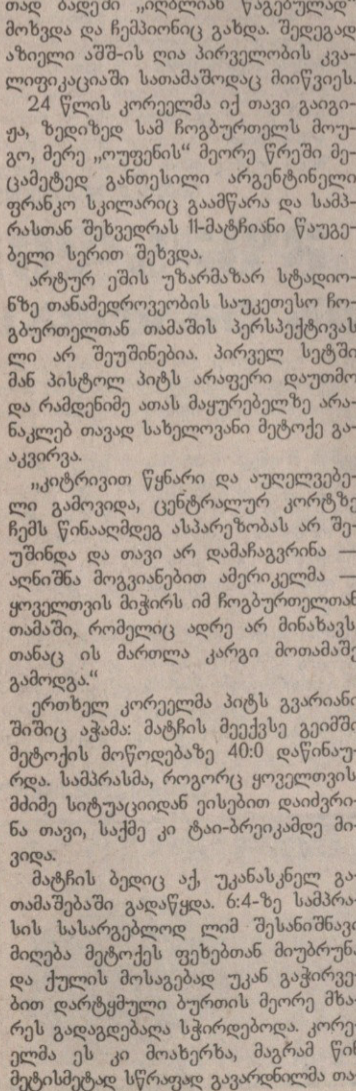 თად ბადეში „იღბლიან წაგებულად“
მოხვდა და ჩემპიონიც გახდა. შედეგად
აზიელი აშშ-ის ღია პირველობის კვა-
ლიფიკაციაში სათამაშოდაც მიიწვიეს.
24 წლის კორეელმა იქ თავი გაიგი-
ჟა, ზედიზედ სამ ჩოგბურთელს მოუ-
გო, მერე „ოუფენის“ მეორე წრეში მე-
ცამეტედ განთესილი არგენტინელი
ფრანკო სკილარიც გაამწარა და სამპ-
რასთან შეხვედრას 11-მატჩიანი წაუგე-
ბელი სერით შეხვდა.
არტურ ეშის უზარმაზარ სტადიო-
ნზე თანამედროვეობის საუკეთესო ჩო-
გბურთელთან თამაშის პერსპექტივას
ლი არ შეუშინებია. პირველ სეტში
მან პისტოლ პიტს არაფერი დაუთმო
და რამდენიმე ათას მაყურებელზე არა-
ნაკლებ თავად სახელოვანი მეტოქე გა-
აკვირვა.
„კიტრივით წყნარი და აუღელვებე-
ლი გამოვიდა, ცენტრალურ კორტზე
ჩემს წინააღმდეგ ასპარეზობას არ შე-
უშინდა და თავი არ დამაჩაგვრინა —
აღნიშნა მოგვიანებით ამერიკელმა —
ყოველთვის მიჭირს იმ ჩოგბურთელთან
თამაში, რომელიც ადრე არ მინახავს,
თანაც ის მართლა კარგი მოთამაშე
გამოდგა.“
ერთხელ კორეელმა პიტს გვარიანი
შიშიც აჭამა: მატჩის მეექვსე გეიმში
მეტოქის მოწოდებაზე 40:0 დაწინაუ-
რდა. სამპრასმა, როგორც ყოველთვის
მძიმე სიტუაციიდან ეისებით დაიძვრი-
ნა თავი, საქმე კი ტაი-ბრეიკამდე მი-
ვიდა.
მატჩის ბედიც აქ, უკანასკნელ გა-
თამაშებაში გადაწყდა. 6:4-ზე სამპრა-
სის სასარგებლოდ ლიმ შესანიშნავი
მიღება მეტოქეს ფეხებთან მიუბრუნა
და ქულის მოსაგებად უკან გაჭირვე-
ბით დარტყმული ბურთის მეორე მხა-
რეს გადაგდებაღა სჭირდებოდა. კორე-
ელმა ეს კი მოახერხა, მაგრამ წინ
მეტისმეტად სწრაფად გავარდნილმა თა-